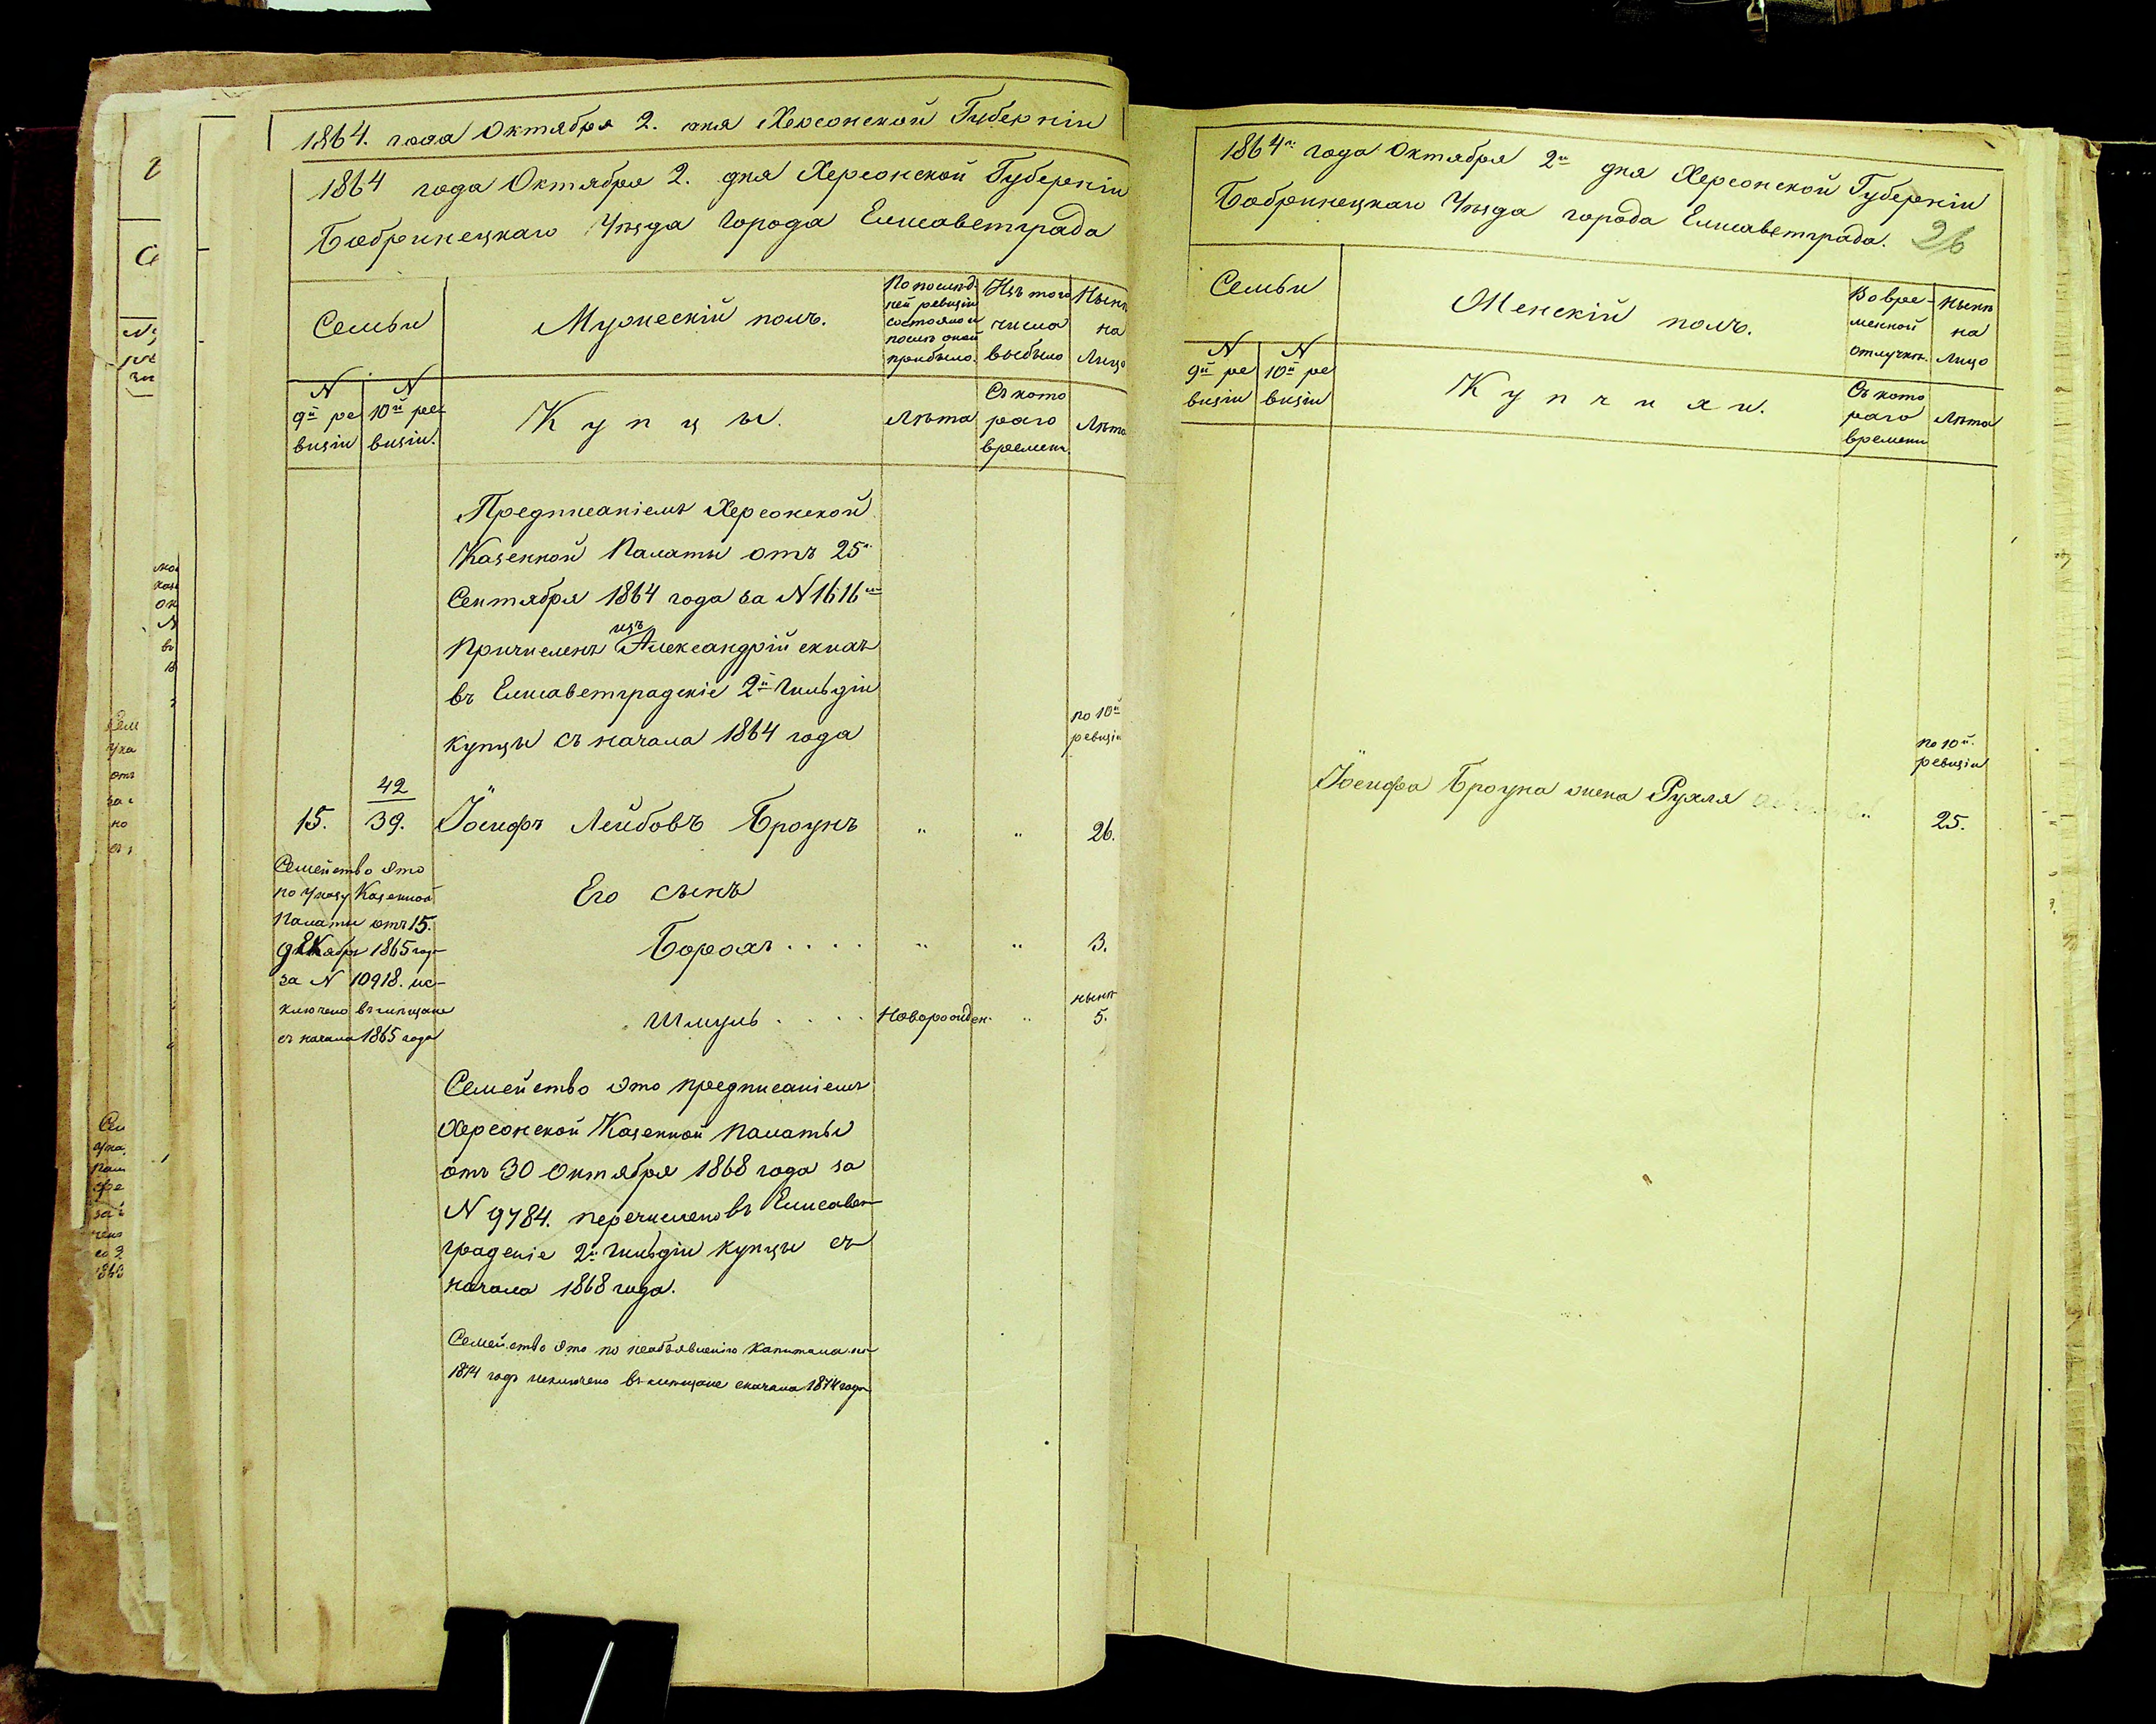 1864. года Октября 2. дня Херсонской Губерніи
1864 года Октября 2. дня Херсонской Губерніи
Бобринецкаго Уѣзда Города Елисаветграда
Семьи
Мужескій полъ.
По послѣд
ней ревизіи
состояло и
послѣ оной
прибыло.
Изъ того
числа
выбыло
Нынѣ
на
Лицо
N
9й ре
визіи
N
10й ре
визіи.
Купцы.
Лѣта
Съ кото
раго
времени
Лѣта
Предписаніемъ Херсонской
Казенной Палаты отъ 25го
Сентября 1864 года за N 1616
изъ
причисленъ Александрійскихъ
въ Елисаветградскіе 2й Гильдіи
купцы съ начала 1864 года
по 10й
ревизіи
42
15. 39. Іосифъ Лейбовъ Броунъ " " 26.
Семейство это
по указу Казенной
Палаты отъ 15.
декабря 1865 год
за N 10918. ис-
ключено въ мѣщане
съ начала 1865 года
Его сынъ
Борохъ . . . . " " 3.
нынѣ
Шмуль . . . . Новорожден. " 5.
Семейство это предписаніемъ
Херсонской Казенной Палаты
отъ 30 Октября 1868 года за
N 9784. перечислено въ Елисавет
градскіе 2й Гильдіи купцы съ
начала 1868 года.
Семейство это по необъявленію капитала на
1874 годъ исключено въ мѣщане сначала 1874 года
1864го года Октября 2го дня Херсонской Губерніи
Бобринецкаго Уѣзда города Елисаветграда. 26
Семьи
Женскій полъ.
Во вре-
менной
отлучкѣ.
Нынѣ
на
Лицо
N
9й ре
визіи
N
10й ре
визіи
Купчихи.
Съ кото
раго
времени
Лѣта
по 10й.
ревизіи
Іосифа Броуна жена Рухля " 25.